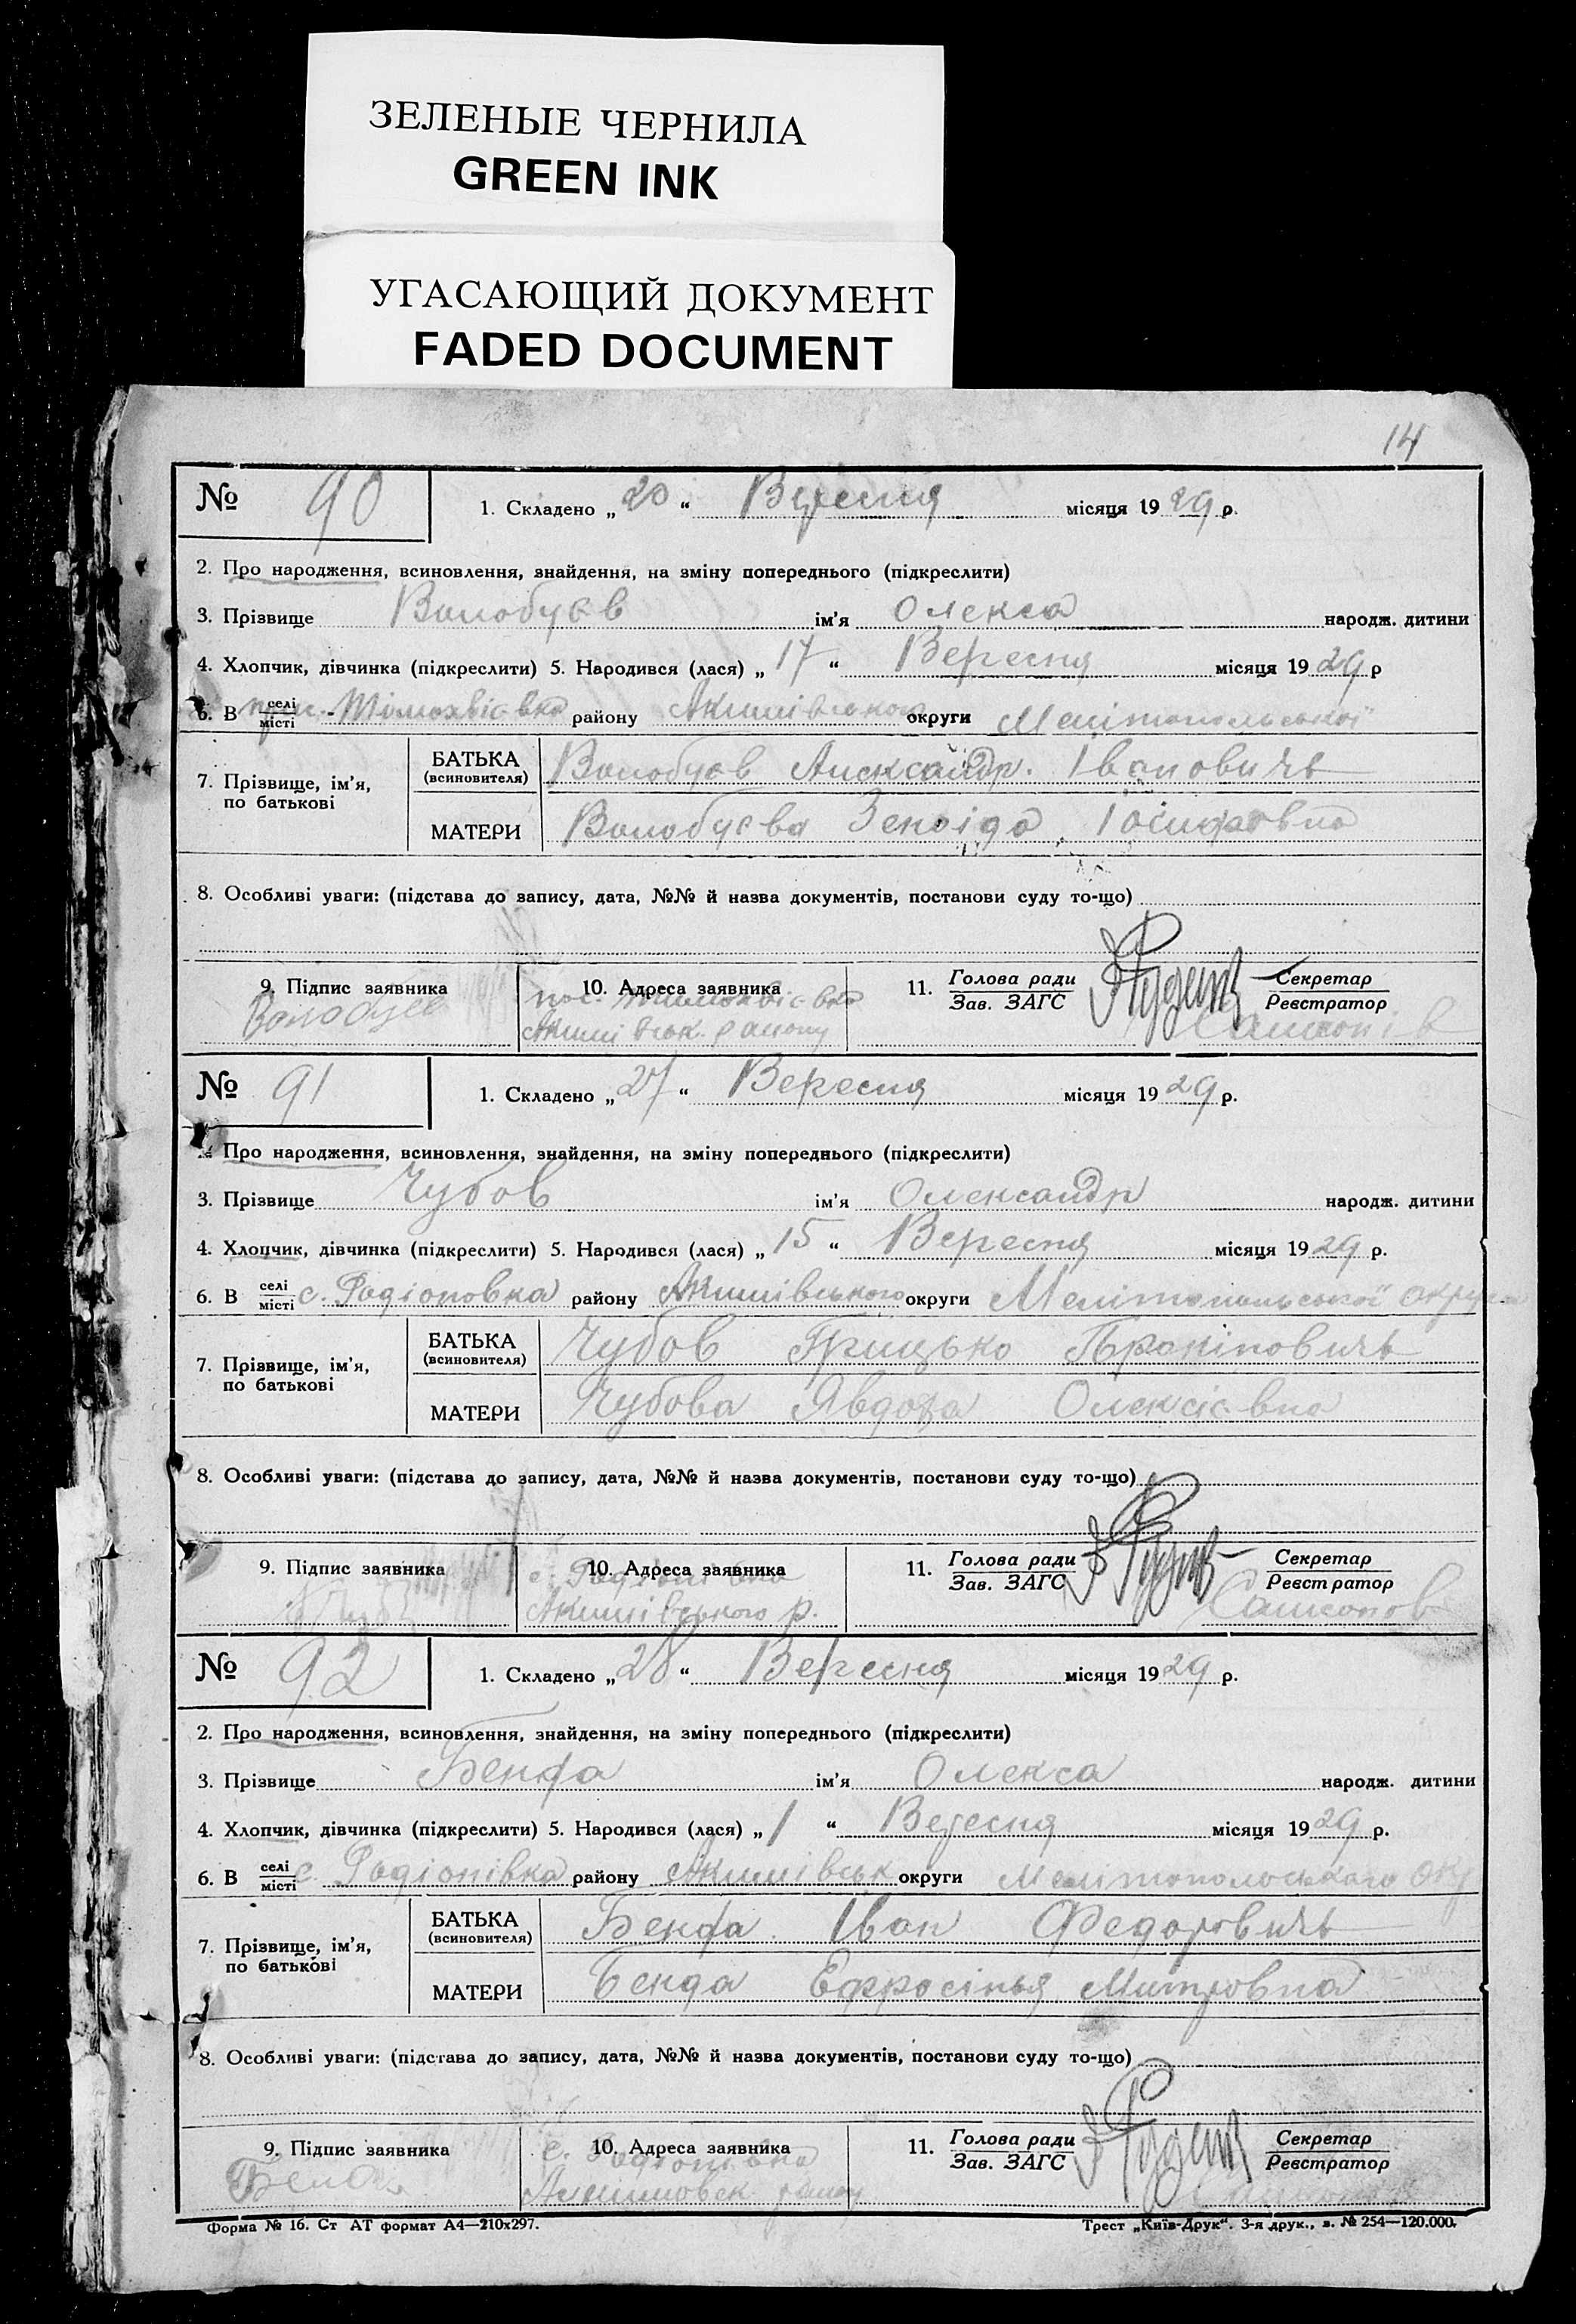 ЗЕЛЕНЫЕ ЧЕРНИЛА
GREEN INK
УГАСАЮЩИЙ ДОКУМЕНТ
FADED DOCUMENT
14
№ 90 1. Складено „20“ Вересня місяця 1929 р.
2. Про народження, всиновлення, знайдення, на зміну попереднього (підкреслити)
3. Прізвище Волобуєв ім'я Олекса народж. дитини
4. Хлопчик, дівчинка (підкреслити) 5. Народився (лася) „17“ Вересня місяця 1929 р
6. В селі/місті пос. Тімохвієвка району Акимівського округи Мелітопольської
7. Прізвище, ім'я, по батькові
БАТЬКА (всиновителя) Волобуєв Александр. Івановичь
МАТЕРИ Волобуєва Зеноіда Іосифовна
8. Особливі уваги: (підстава до запису, дата, №№ й назва документів, постанови суду то-що)
9. Підпис заявника 10. Адреса заявника 11. Голова ради Зав. ЗАГС Секретар Реєстратор
Волобуев пос. Тимохвієвка
Акимівськ. району
№ 91 1. Складено „27“ Вересня місяця 1929 р.
2. Про народження, всиновлення, знайдення, на зміну попереднього (підкреслити)
3. Прізвище Чубов ім'я Олександр народж. дитини
4. Хлопчик, дівчинка (підкреслити) 5. Народився (лася) „15“ Вересня місяця 1929 р.
6. В селі/місті с. Родіоновка району Акимівського округи Мелітопольської округи
7. Прізвище, ім'я, по батькові
БАТЬКА (всиновителя) Чубов Грицько Прокіповичь
МАТЕРИ Чубова Явдоха Олексієвна
8. Особливі уваги: (підстава до запису, дата, №№ й назва документів, постанови суду то-що)
9. Підпис заявника 10. Адреса заявника 11. Голова ради Зав. ЗАГС Секретар Реєстратор
с. Родіонівка
Акимівського р.
№ 92 1. Складено „28“ Вересня місяця 1929 р.
2. Про народження, всиновлення, знайдення, на зміну попереднього (підкреслити)
3. Прізвище Бенда ім'я Олекса народж. дитини
4. Хлопчик, дівчинка (підкреслити) 5. Народився (лася) „1“ Вересня місяця 1929 р.
6. В селі/місті с. Родіонівка району Акимівськ округи Мелитопольського окр
7. Прізвище, ім'я, по батькові
БАТЬКА (всиновителя) Бенда Іван Федоровичь
МАТЕРИ Бенда Ефросінья Митровна
8. Особливі уваги: (підстава до запису, дата, №№ й назва документів, постанови суду то-що)
9. Підпис заявника 10. Адреса заявника 11. Голова ради Зав. ЗАГС Секретар Реєстратор
Бенда с. Родіонівка
Акимовск району
Форма № 16. Ст АТ формат А4—210х297. Трест „Київ-Друк“. 3-я друк., з. № 254—120.000.